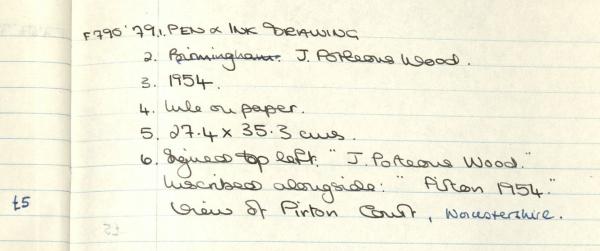 F790'79.1. PEN & INK DRAWING
2. Birmingham. J. Porteous Wood.
3. 1954.
4. Ink on paper.
5. 27.4 x 35.3 cms.
6. Signed top left: "J. Porteous Wood."
Inscribed alongside: "Pirton 1954."
£5 View of Pirton Court, Worcestershire.